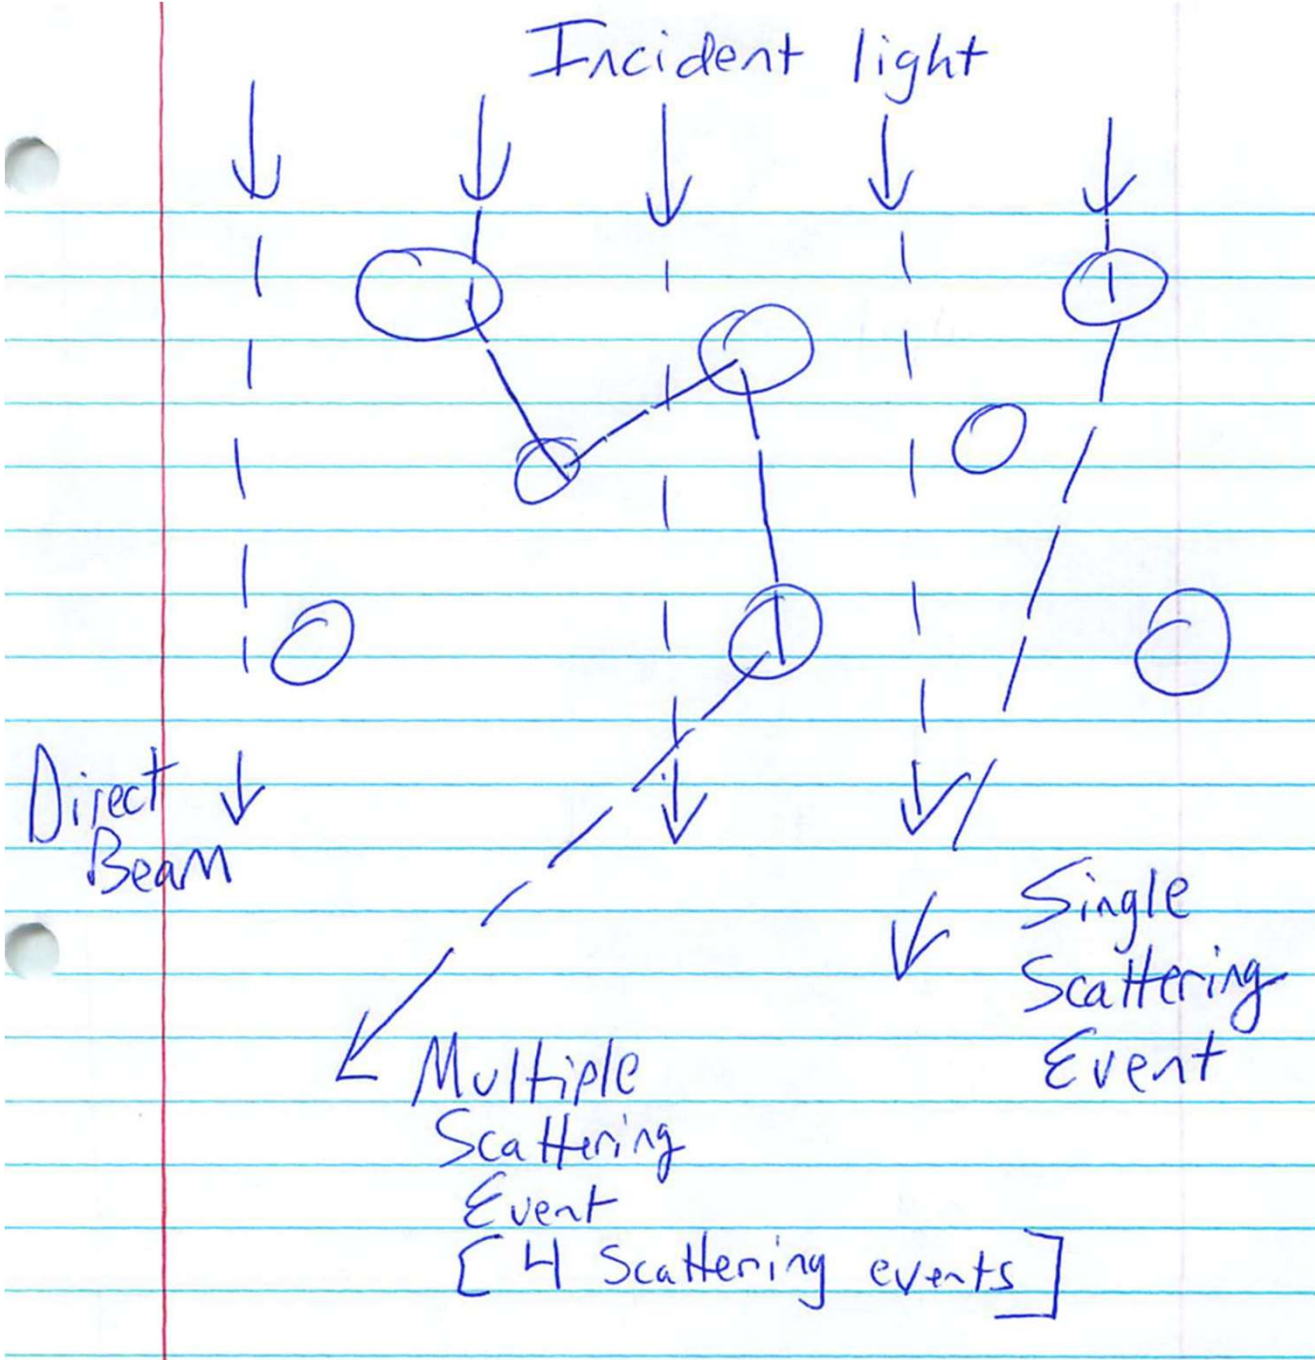 Incident light
Direct
Beam
Single
Scattering
Event
Multiple
Scattering
Event
[4 Scattering events]